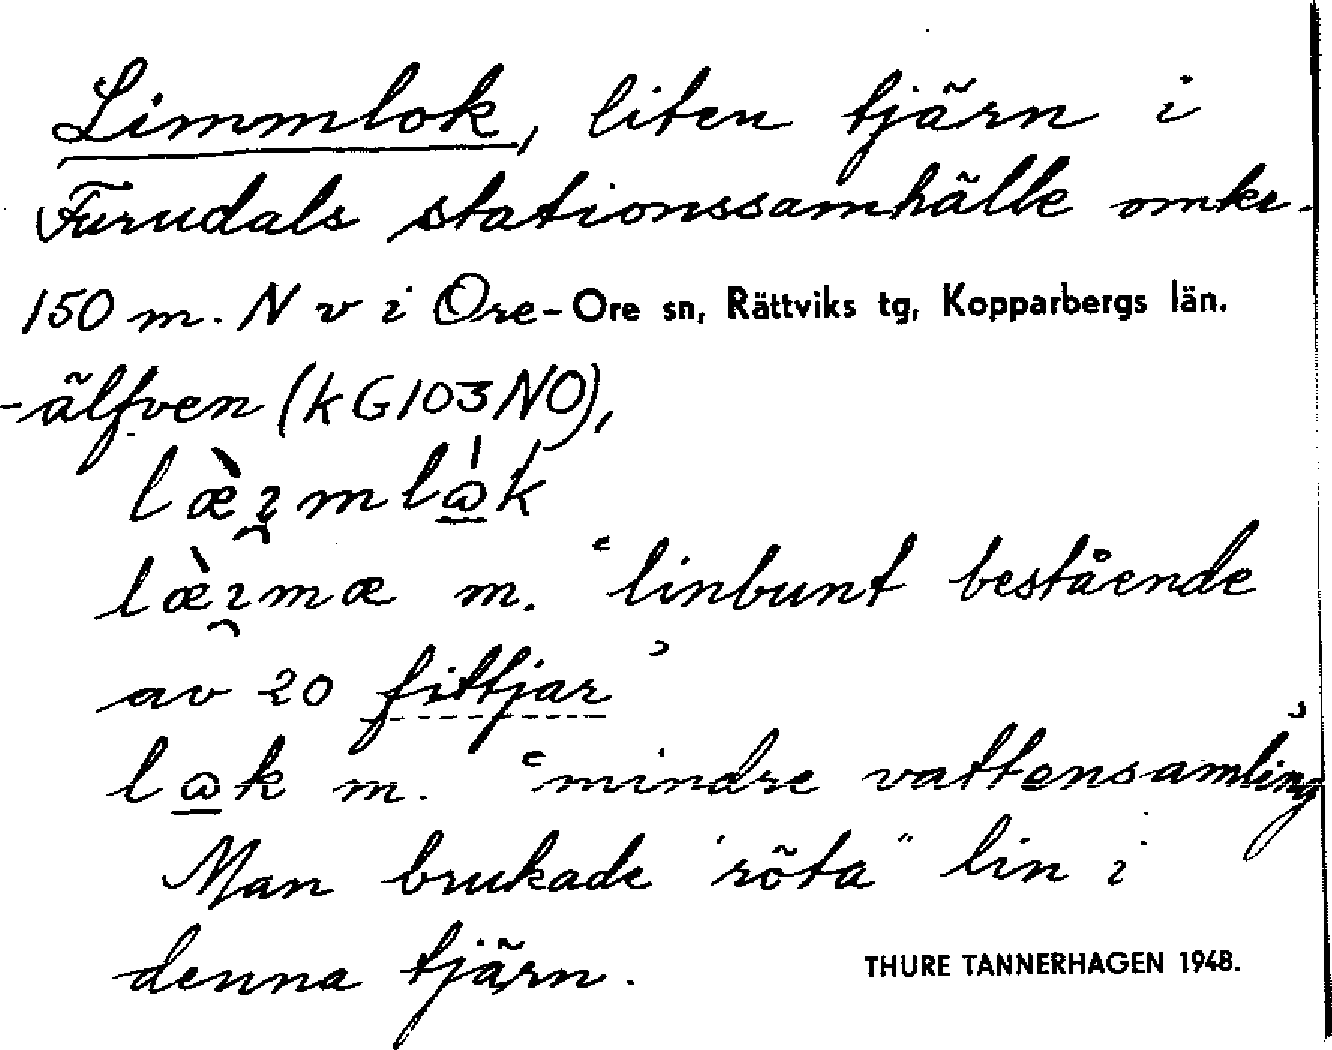 Limmlok, liten tjärn i
Furudals stationssamhälle omkr.
150 m. N v i Ore- Ore sn, Rättviks tg, Kopparbergs län.
-älfven (k G103NO),
m.  ̔linbunt bestående
av 20 fittjar ̓
m.  ̔mindre vattensamling ̓
Man brukade "röta" lin i
denna tjärn.
THURE TANNERHAGEN 1948.